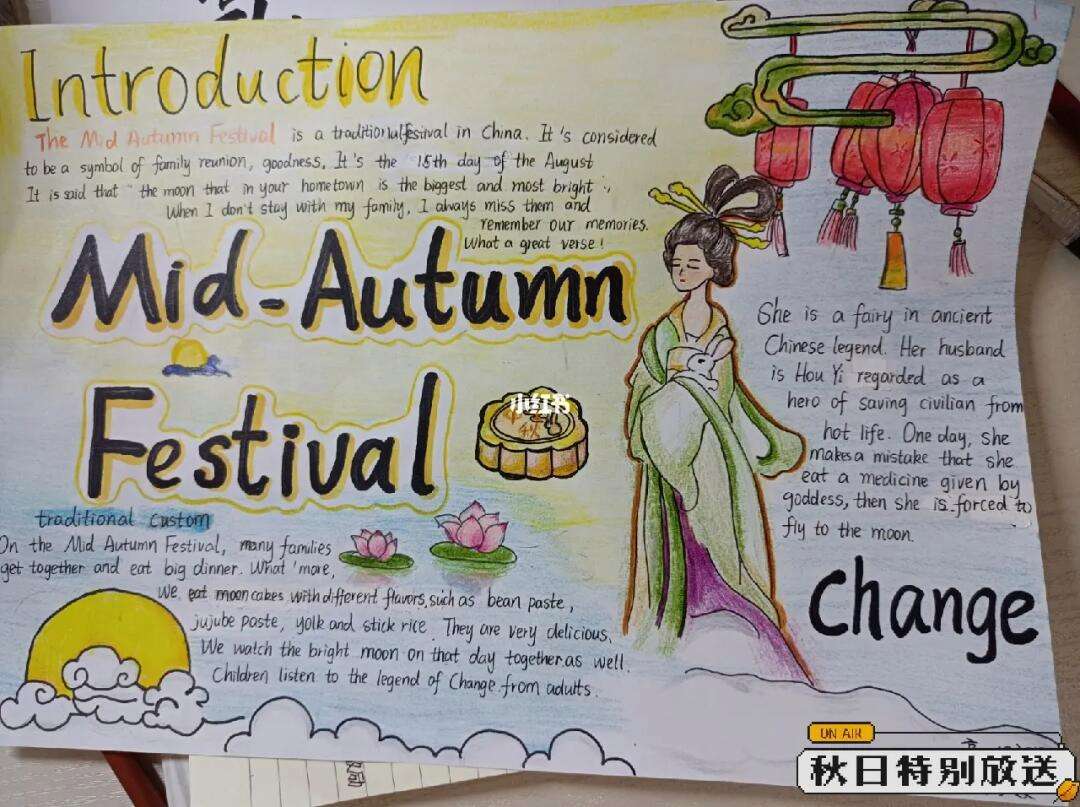 Introduction
The Mid Autumn Festival is a traditional festival in China. It's considered
to be a symbol of family reunion, goodness. It's the 15th day of the August
It is said that "the moon that in your hometown is the biggest and most bright",
When I don't stay with my family, I always miss them and
remember our memories.
What a great verse!
Mid-Autumn
Festival
小红书
traditional custom
On the Mid Autumn Festival, many families
get together and eat big dinner. What 'more,
We eat mooncakes with different flavors, such as bean paste,
jujube paste, yolk and stick rice. They are very delicious.
We watch the bright moon on that day together as well.
Children listen to the legend of Change from adults.
She is a fairy in ancient
Chinese legend. Her husband
is Hou Yi regarded as a
hero of saving civilian from
hot life. One day, she
makes a mistake that she
eat a medicine given by
goddess, then she is forced to
fly to the moon.
Change
ON AIR
秋日特别放送